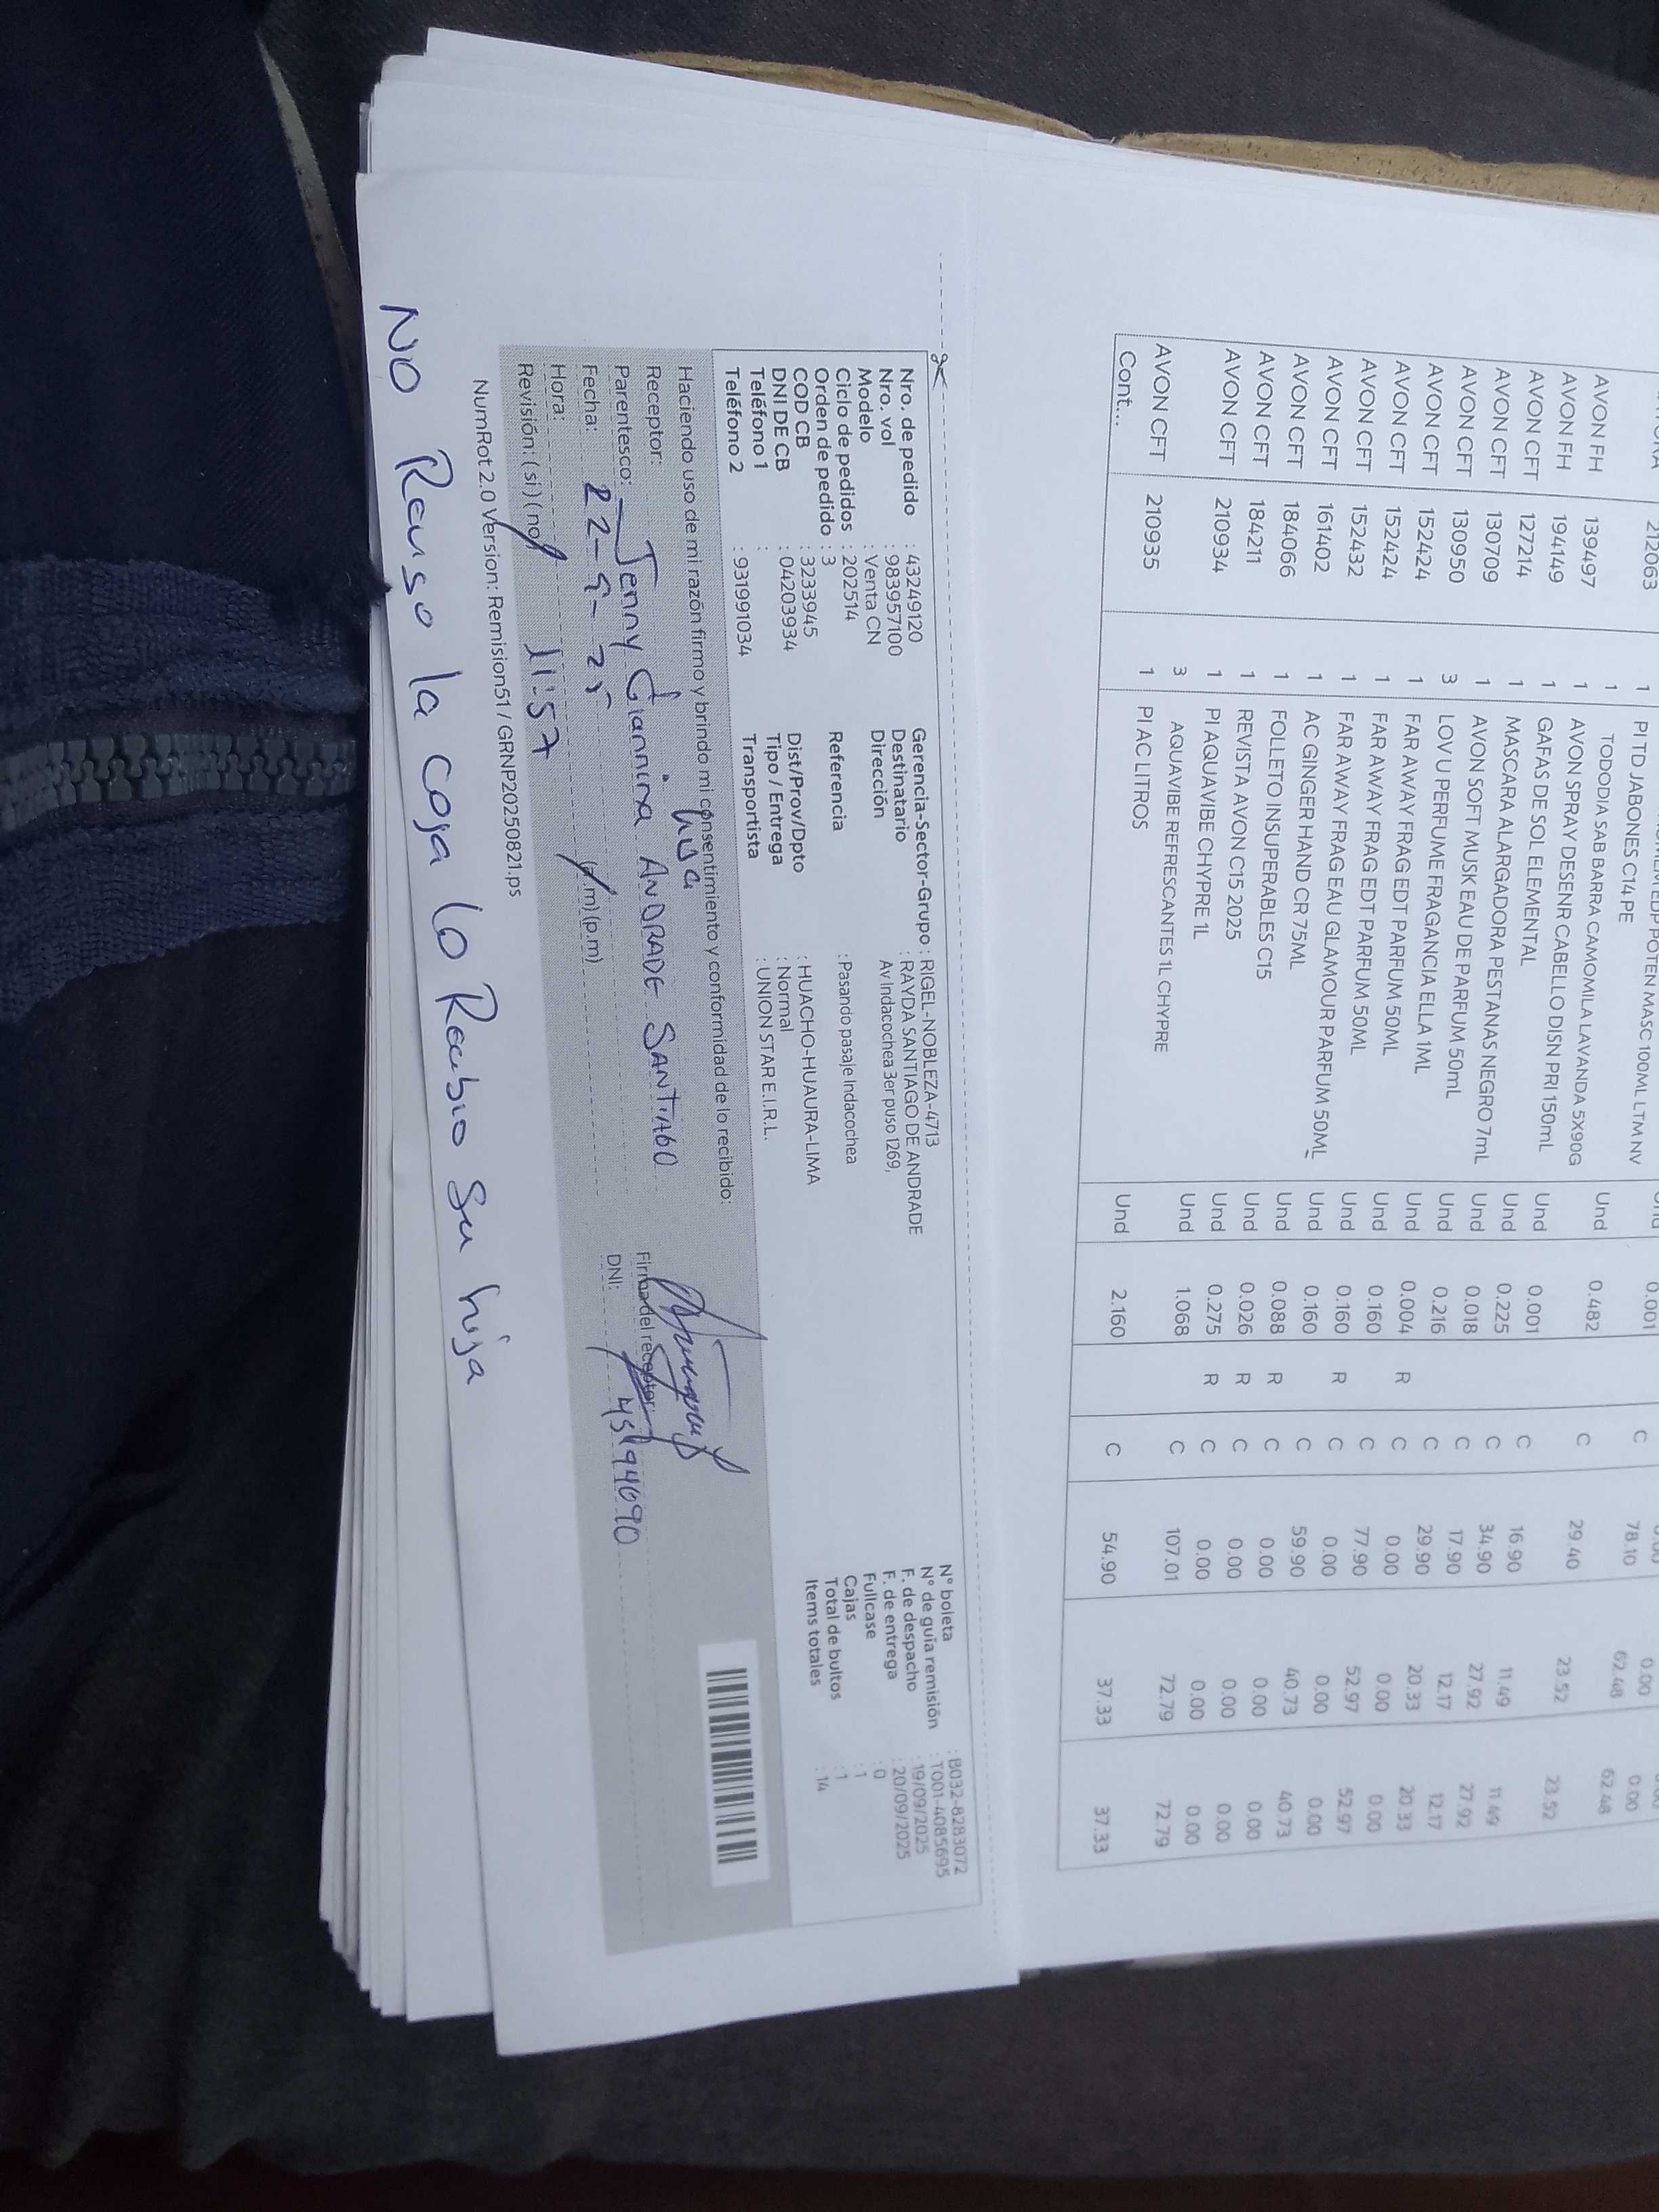 212063 1 PI TD JABONES C14 PE 0.001 C 78.10 0.00 0.00
1 TODODIA SAB BARRA CAMOMILA LAVANDA 5X90G Und 0.482 62.48 62.48
AVON FH 139497 1 AVON SPRAY DESENR CABELLO DISN PRI 150mL C 29.40 23.52 23.52
AVON FH 194149 1 GAFAS DE SOL ELEMENTAL Und 0.001
AVON CFT 127214 1 MASCARA ALARGADORA PESTANAS NEGRO 7mL Und 0.225 C 16.90 11.49 11.49
AVON CFT 130709 1 AVON SOFT MUSK EAU DE PARFUM 50mL Und 0.018 C 34.90 27.92 27.92
AVON CFT 130950 3 LOV U PERFUME FRAGANCIA ELLA 1ML Und 0.216 C 17.90 12.17 12.17
AVON CFT 152424 1 FAR AWAY FRAG EDT PARFUM 50ML Und 0.004 R C 29.90 20.33 20.33
AVON CFT 152424 1 FAR AWAY FRAG EDT PARFUM 50ML Und 0.160 C 0.00 0.00 0.00
AVON CFT 152432 1 FAR AWAY FRAG EAU GLAMOUR PARFUM 50ML Und 0.160 R C 77.90 52.97 52.97
AVON CFT 161402 1 AC GINGER HAND CR 75ML Und 0.160 C 0.00 0.00 0.00
AVON CFT 184066 1 FOLLETO INSUPERABLES C15 Und 0.088 R C 59.90 40.73 40.73
AVON CFT 184211 1 REVISTA AVON C15 2025 Und 0.026 R C 0.00 0.00 0.00
AVON CFT 210934 1 PI AQUAVIBE CHYPRE 1L Und 0.275 R C 0.00 0.00 0.00
3 AQUAVIBE REFRESCANTES 1L CHYPRE Und 1.068 C 0.00 0.00 0.00
AVON CFT 210935 1 PI AC LITROS 107.01 72.79 72.79
Cont... Und 2.160 C 54.90 37.33 37.33
Nro. de pedido : 43249120 Gerencia-Sector-Grupo : RIGEL-NOBLEZA-4713 N° boleta : B032-8283072
Nro. vol : 983957100 Destinatario : RAYDA SANTIAGO DE ANDRADE N° de guía remisión : T001-4085695
Modelo : Venta CN Dirección Av Indacochea 3er puso 1269, F. de despacho : 19/09/2025
Ciclo de pedidos : 202514 F. de entrega : 20/09/2025
Orden de pedido : 3 Referencia : Pasando pasaje Indacochea Fullcase : 0
COD CB : 3233945 Cajas : 1
DNI DE CB : 04203934 Dist/Prov/Dpto : HUACHO-HUAURA-LIMA Total de bultos : 1
Teléfono 1 : Tipo / Entrega : Normal Items totales : 14
Teléfono 2 : 931991034 Transportista : UNION STAR E.I.R.L.
Haciendo uso de mi razón firmo y brindo mi consentimiento y conformidad de lo recibido:
hija
Receptor: Jenny Giannina ANDRADE SANTIAGO Firma del receptor:
Parentesco: DNI: 45194090
Fecha: 22-9-25
Hora: 11:57 (a.m) (p.m)
Revisión: (si) (no)
NumRot 2.0 Version: Remision51 / GRNP20250821.ps
NO Reviso la caja lo Recibio su hija